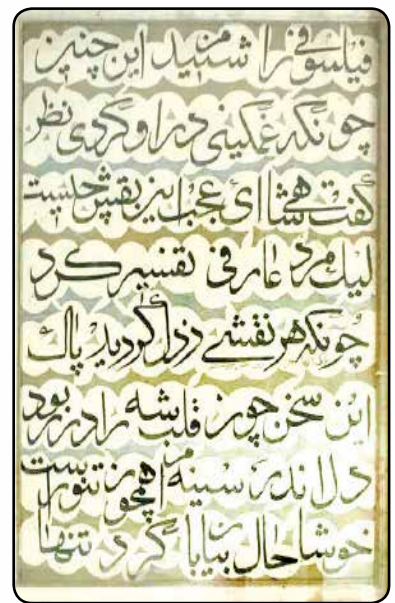 فیلسوفی را شنیدم این چنین
چونکه غمگینی در او کردی نظر
گفت شاها ای عجب این نقش چیست
لیک مرد عارفی تفسیر کرد
چونکه هر نقشی ز دل گردید پاک
این سخن چون قلب شه را در ربود
دل اندر سینه من همچو تنور است
خوشا حال بیابان گرد تنها